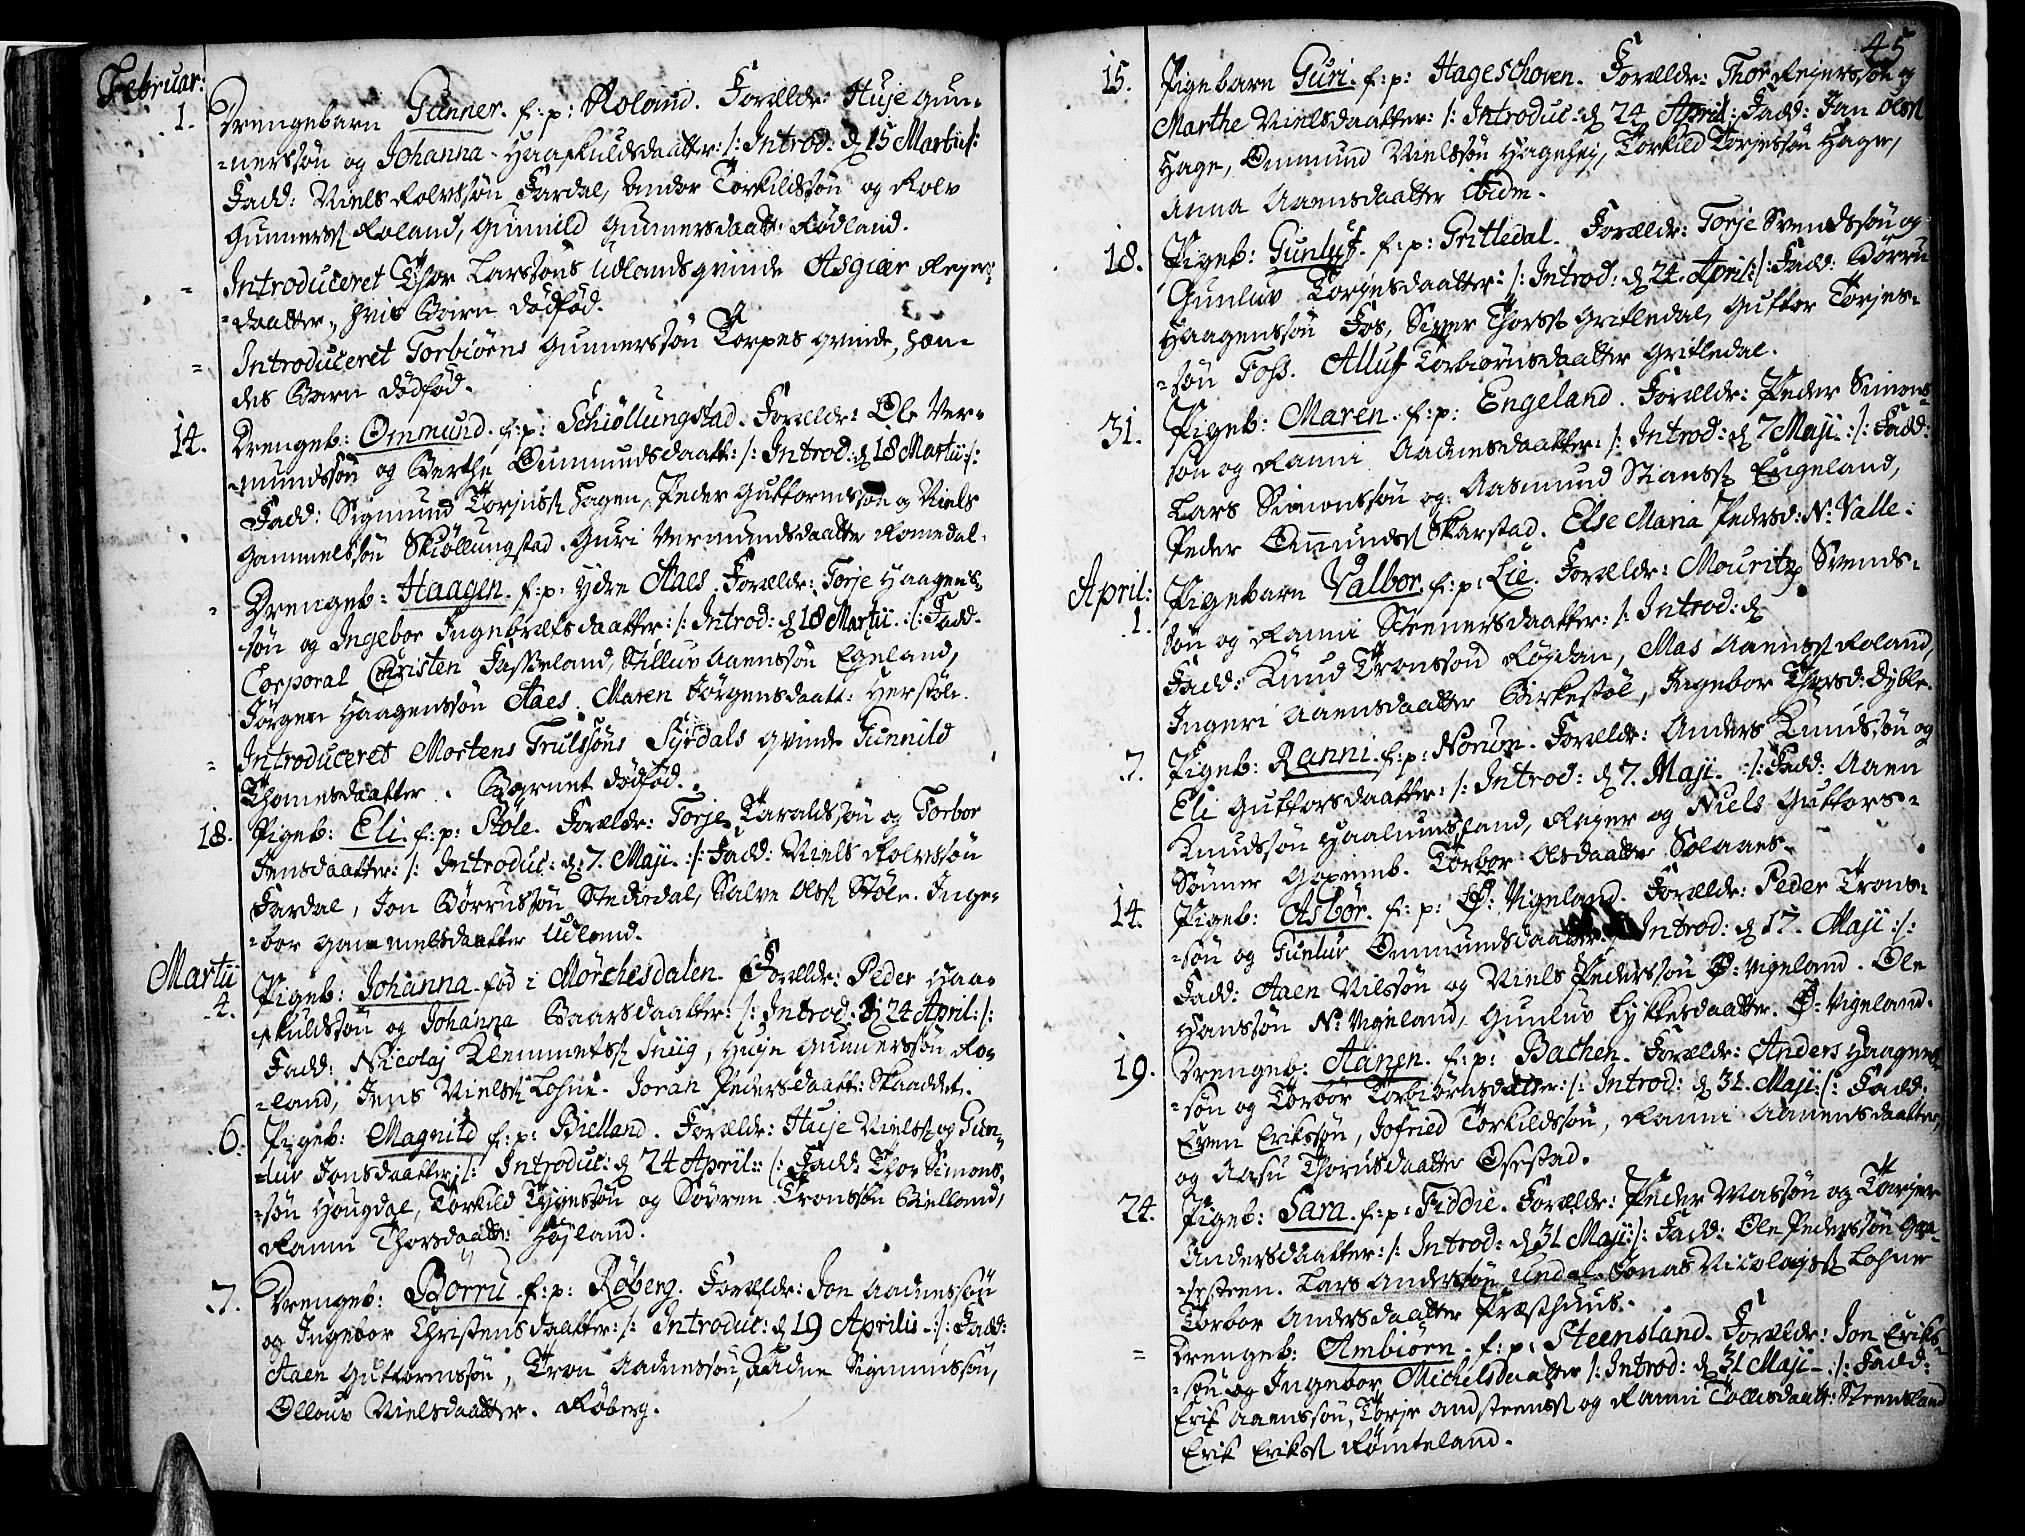 Februar:
1. Drengebarn Gunner. f:p: Roland. Forældr: Huje Gun-
-nerssøn og Johanna Haafkuldsdaatter: /: Introd: d 15 Martii /:
Fadd: Niels Rolvssøn Fardal, Andor Torkildssøn og Rolv
Gunnerss Roland, Gunnild Gunnersdaatt: Rødland.
= Introduceret Thor Larssøns Udlands qvinde Asgier Rejers-
-daatter, hvis Barn dødfød.
= Introduceret Torbiørns Gunnerssøn Torpes qvinde, hen-
des Barn dødfød.
14. Drengeb: Ommund. f:p: Schiøllungstad. Forældr: Ole Ver-
-mundssøn og Berthe Ommundsdaatt: /: Introd: d 18 Martii /:
Fadd: Sigmund Torjuss Hagen, Peder Guttormssøn og Niels
Gammelssøn Skiøllungstad. Guri Vermundsdaatter Romedal.
= Drengeb: Haagen. f:p: Ydre Aaes. Forældr: Torje Haagens-
søn og Ingebor Ingebretsdaatter: /: Introd: d 18 Martii :/: Fadd.
Corporal Christen Fasseland, Stilluv Aaenssøn Egeland,
Jørgen Haagenssøn Aaes. Maren Jørgensdaatt: Herstøl.
= Introduceret Mortens Trulssøns Syrdals qvinde Gunnild
Thomesdaatter. Barnet dødfød.
18. Pigeb: Eli. f:p: Støle. Forældr: Torje Taraldssøn og Torbor
Jensdaatter: /: Introduc: d: 7. Maji. :/: Fadd: Niels Rolvssøn
Fardal, Jon Børrussøn Stedjedal, Salve Olss Støle. Inge-
-bor Gammelsdaatter Udland.
Martii
4. Pigeb: Johanna. fød i Mørchesdalen. Forældr: Peder Haa-
fkuldssøn og Johanna Baarsdaatter: /: Introd: d 24 April: /:
Fadd: Nicolaj Klemmetss Snig, Huje Gunnerssøn Ro-
-land, Jens Nielss Lohne. Joran Pedersdaatt: Skaaddet.
6. Pigeb: Magnild f:p: Bielland. Forældr: Huje Nielss og Gun-
-luv Jonsdaatter: /: Introduc: d 24 April: /: Fadd: Thor Simons-
-søn Hougdal, Torkild Tygessøn og Sørren Tronssøn Bielland,
Ranni Thorsdaatt: Højland.
7. Drengeb: Børru. f:p: Røberg. Forældr: Jon Aadnessøn
og Ingebor Christensdaatter: /: Introduc: d 19 Aprilis :/: Fadd:
Aaen Guttormssøn, Tron Aadnessøn, Aadne Sigmundssøn,
Ollouv Nielsdaatter. Røberg.
45
15. Pigebarn Guri. f:p: Hageschoven. Forældr: Thor Rejerssøn og
Marthe Nielsdaatter: /: Introduc: d 24 April: Fadd: Jan Olss
Hage, Ommund Nielssøn Hagehej, Torkild Torjessøn Hage,
Anna Aaensdaatter ibidm.
18. Pigeb: Gunluf. f:p: Gritledal. Forældr: Torje Svendssøn og
Gunluv Torjesdaatter: /: Introd: d 24. April: /: Fadd: Børru
Haagenssøn Fos, Siver Thorss Gritledal, Guttor Torjes-
-søn Foss. Alluf Torbiørnsdaatter Gritledal.
31. Pigeb: Maren. f:p: Engeland. Forældr: Peder Simons-
søn og Ranni Aadnesdaatter: /: Introd: d 7 Maji. :/: Fadd:
Lars Simonssøn og Aasmund Stianss Engeland,
Peder Ommundss Skarstad. Else Maria Pedersd: N: Valle:
April:
1. Pigebarn Valbor. f:p: Lie. Forældr: Mouritz Svends-
søn og Ranni Steenersdaatter: /: Introd: d
Fadd: Knud Tronssøn Røjdan, Mas Aaenss Roland,
Ingeri Aaensdaatter Birkestøl, Ingebor Thorsd: Dyble.
7. Pigeb: Ranni. f:p: Norum. Forældr: Anders Knudssøn og
Eli Guttorsdaatter: /: Introd: d 7. Maji. :/: Fadd: Aaen
Knudssøn Haalumsland, Rejer og Niels Guttors-
Sønner Torbor Olsdaatter Solaaes.
14. Pigeb: Asbør. f:p: Ø: Vigeland. Forældr: Peder Trons-
-søn og Gunluv Ommundsdaatter: /: Introd: d 17. Maji :/:
Fadd: Aaen Nilssøn og Niels Pederssøn Ø: Vigeland. Ole
Hanssøn N: Vigeland, Gunluv Lykkesdaatter. Ø: Vigeland.
19. Drengeb: Aanen. f:p: Bachen. Forældr: Anders Haagens-
-søn og Torbor Torbiørnsdatter: /: Introd: d 31. Maji: /: Fadd.
Even Erikssøn, Jofried Torkildssøn, Ranni Aanensdaatter,
og Aasu Thorusdaatter Osestad.
24. Pigeb: Sara. f:p: Fiddie. Forældr: Peder Massøn og Torjer
Andersdaatter: /: Introd: d 31 Maji: /: Fadd: Ole Pederssøn Gra-
-festeen. Lars Anderssøn Undal. Jonas Nicolajss Lohne
Torbor Andersdaatter Præsthuus.
= Drengeb: Ambiørn. f:p: Steensland. Forældr: Jon Eriks-
-søn og Ingebor Michelsdaatter /: Introd: d 31 Maji :/: Fadd:
Erik Aaenssøn, Torje Andsteenss og Ranni Tollisdaatt: Steensland
Erik Erikss Rømteland.